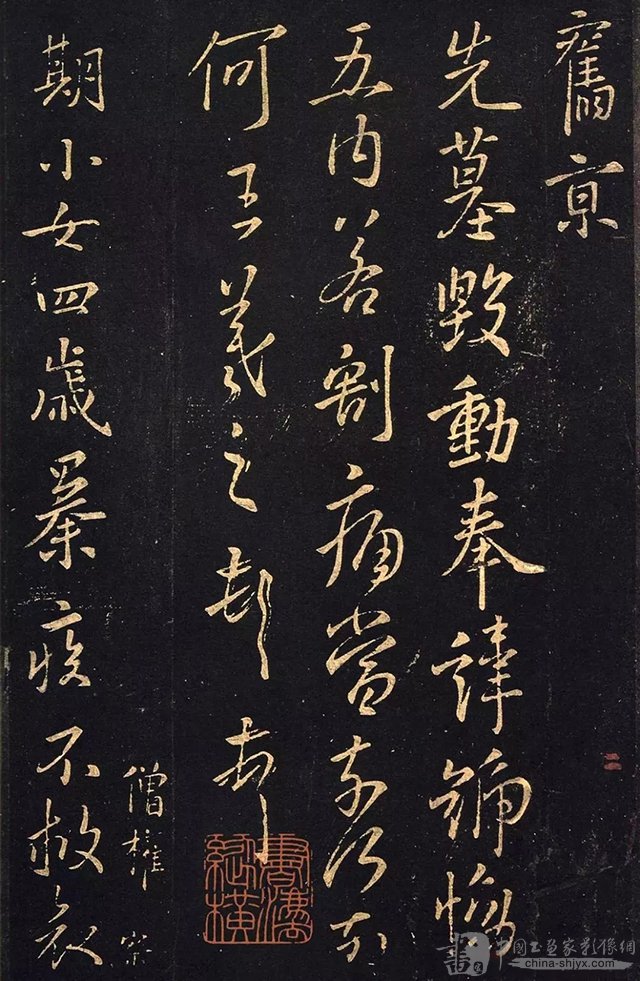 舊京
先墓毀動奉諱號慟
五内若割痛當奈何奈
何王羲之頓首
僧權
察
期小女四歲暴疾不救哀
中国书画家影像網
china-shjyx.com